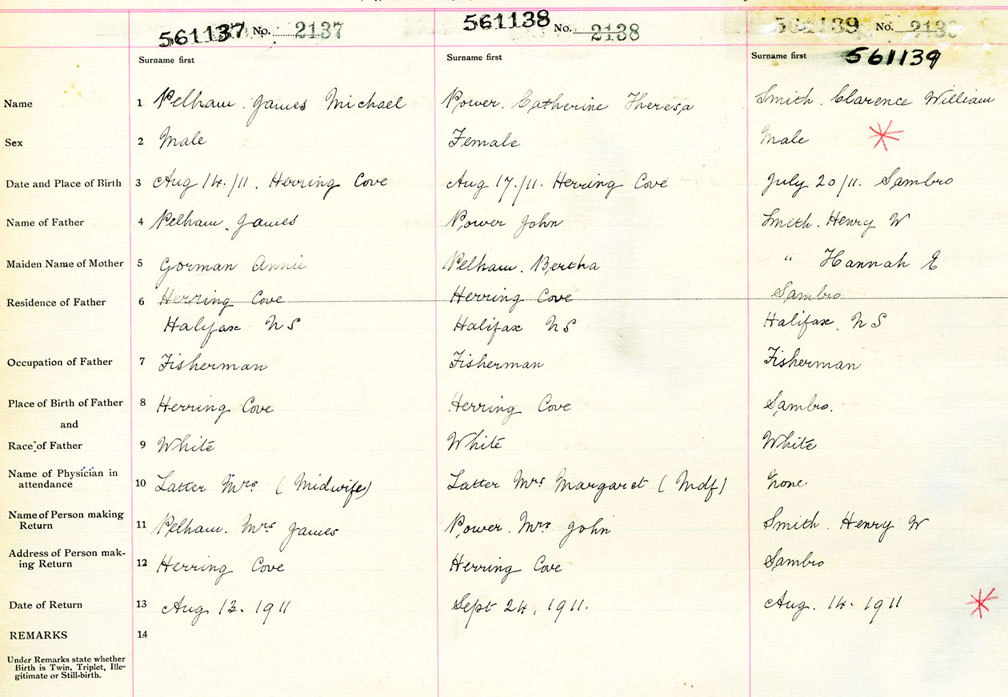 561137 No. 2137 561138 No. 2138 561139 No. 213
Surname first Surname first Surname first 561139
Name 1 Pelham. James Michael Power. Catherine Theresa Smith. Clarence William
Sex 2 Male Female Male
Date and Place of Birth 3 Aug 14./11. Herring Cove Aug 17./11. Herring Cove July 20/11. Sambro
Name of Father 4 Pelham. James Power John Smith. Henry W
Maiden Name of Mother 5 Gorman Annie Pelham. Bertha " Hannah E
Residence of Father 6 Herring Cove Herring Cove Sambro.
Halifax NS Halifax NS Halifax. NS
Occupation of Father 7 Fisherman Fisherman Fisherman
Place of Birth of Father 8 Herring Cove Herring Cove Sambro.
and
Race of Father 9 White White White
Name of Physician in
attendance 10 Latter Mrs (Midwife) Latter Mrs Margaret (Mdf) None
Name of Person making
Return 11 Pelham. Mrs James Power. Mrs John Smith. Henry W
Address of Person mak-
ing Return 12 Herring Cove Herring Cove Sambro
Date of Return 13 Aug 13. 1911 Sept 24, 1911. Aug. 14. 1911
REMARKS 14
Under Remarks state whether
Birth is Twin, Triplet, Ille-
gitimate or Still-birth.